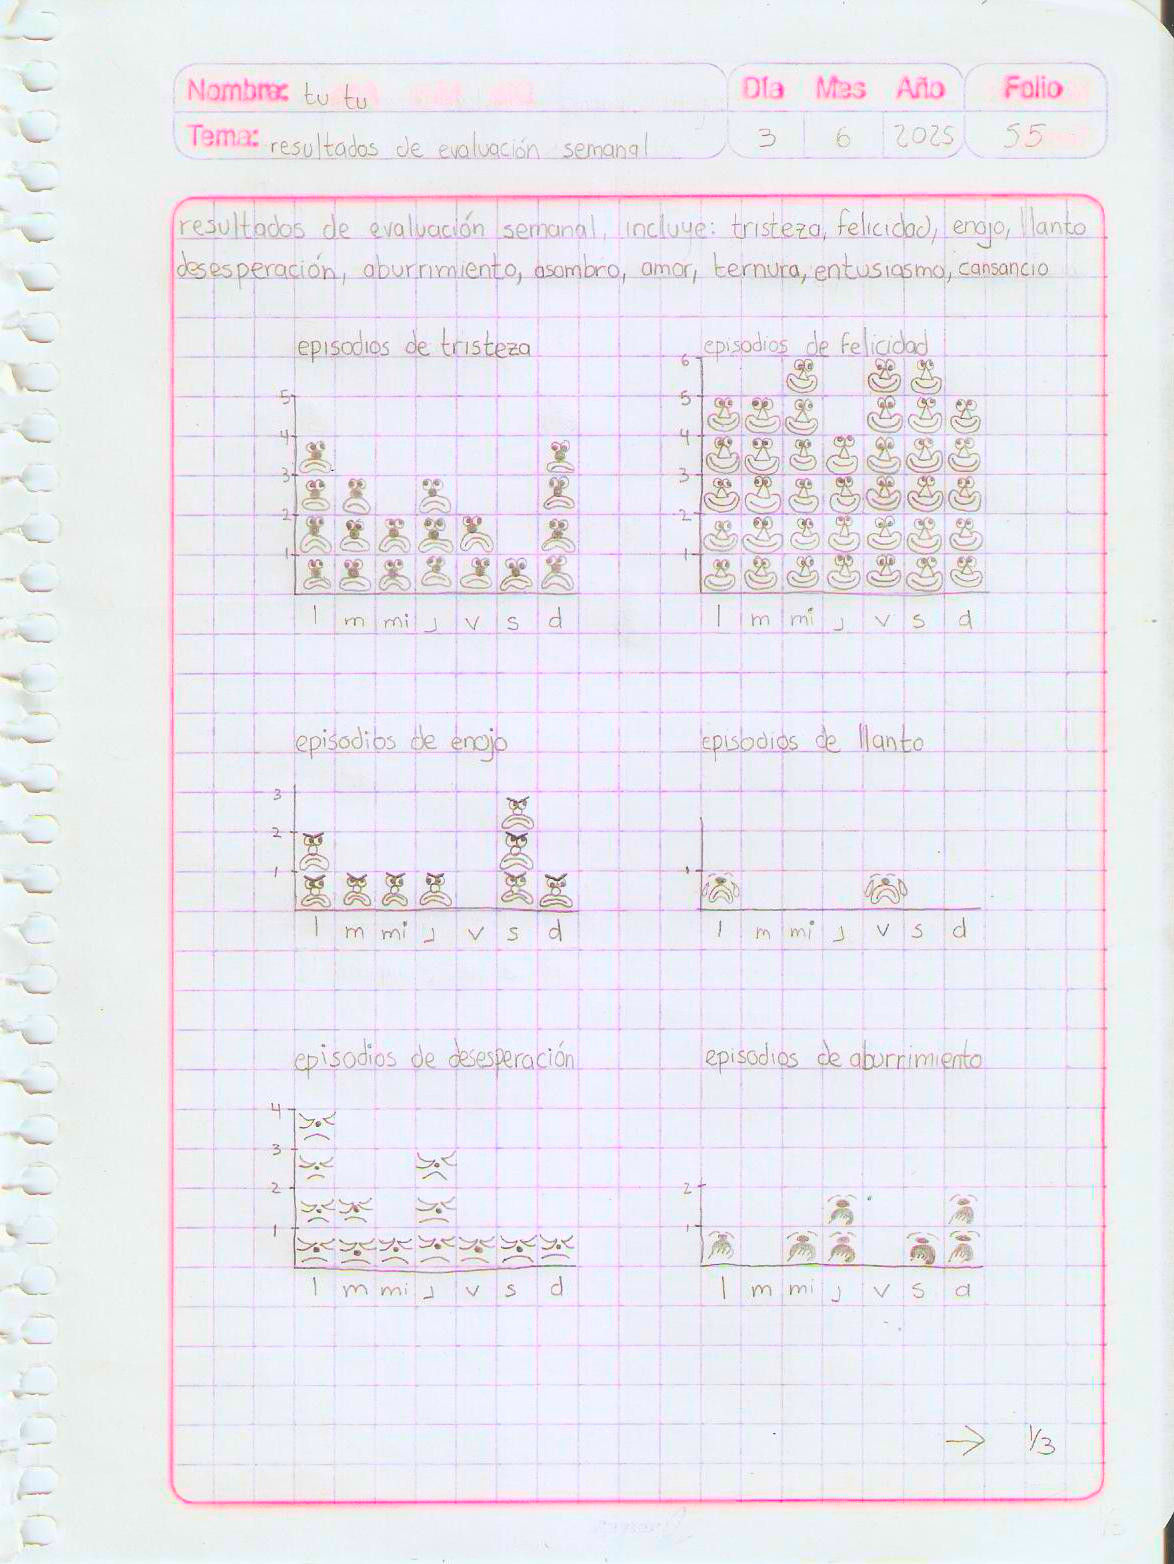 Nombre: tu tu
Día Mes Año Folio
Tema: resultados de evaluación semanal
3 6 2025 55
resultados de evaluación semanal, incluye: tristeza, felicidad, enojo, llanto
desesperación, aburrimiento, asombro, amor, ternura, entusiasmo, cansancio
episodios de tristeza
5
4
3
2
1
l m mi j v s d
episodios de felicidad
6
5
4
3
2
1
l m mi j v s d
episodios de enojo
3
2
1
l m mi j v s d
episodios de llanto
1
l m mi j v s d
episodios de desesperación
4
3
2
1
l m mi j v s d
episodios de aburrimiento
2
1
l m mi j v s d
→ 1/3